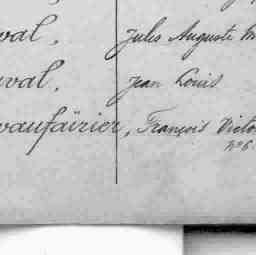 val, Jules Auguste
val, Jean Louis
vaufäirier, François Victo
N° 6